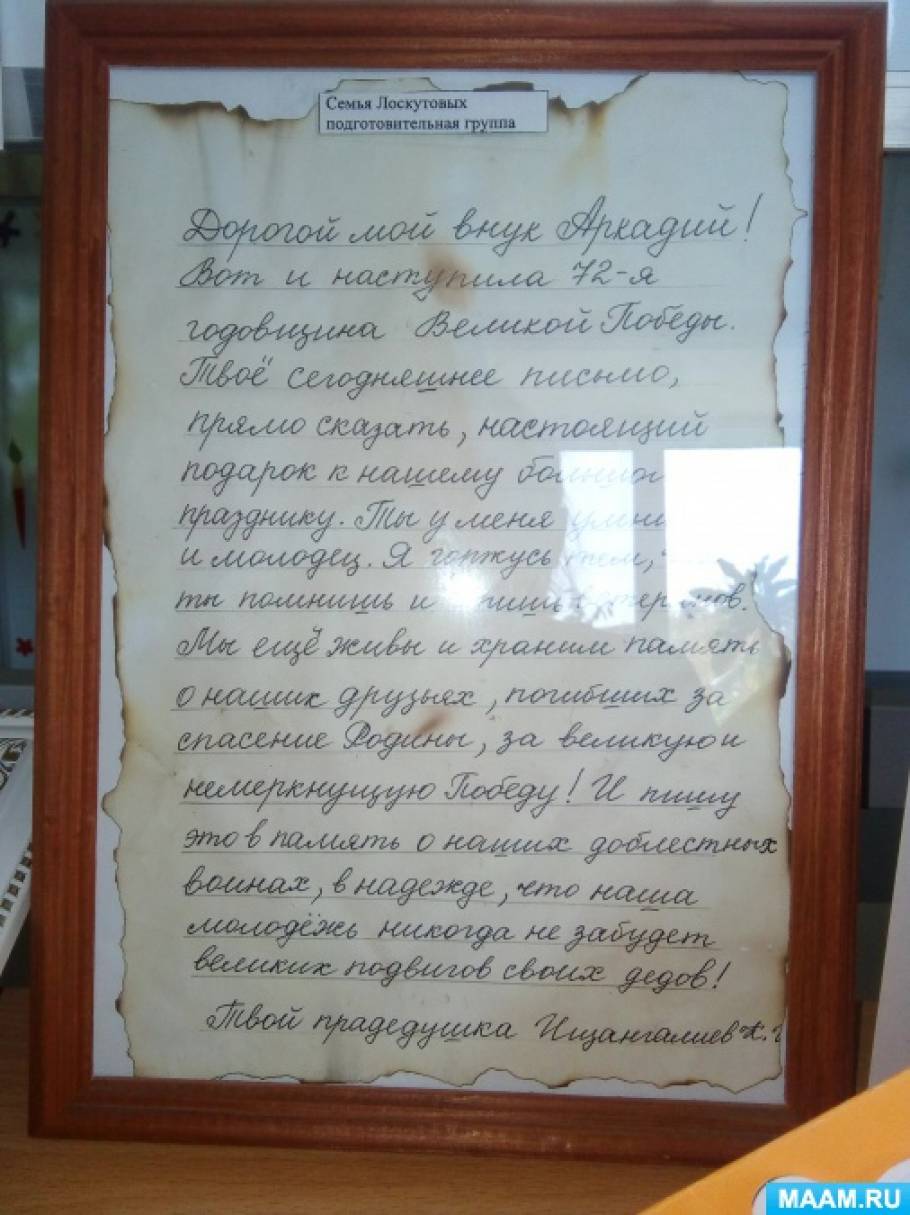 Семья Лоскутовых
подготовительная группа
Дорогой мой внук Аркадий!
Вот и наступила 72-я
годовщина Великой Победы.
Твоё сегодняшнее письмо,
прямо сказать, настоящий
подарок к нашему
празднику. Ты у меня
и молодец. Я горжусь тем,
ты помнишь и
Мы ещё живы и храним память
о наших друзьях, погибших за
спасение Родины, за великую и
немеркнущую Победу! И пишу
это в память о наших доблестных
воинах, в надежде, что наша
молодёжь никогда не забудет
великих подвигов своих дедов!
Твой прадедушка
MAAM.RU